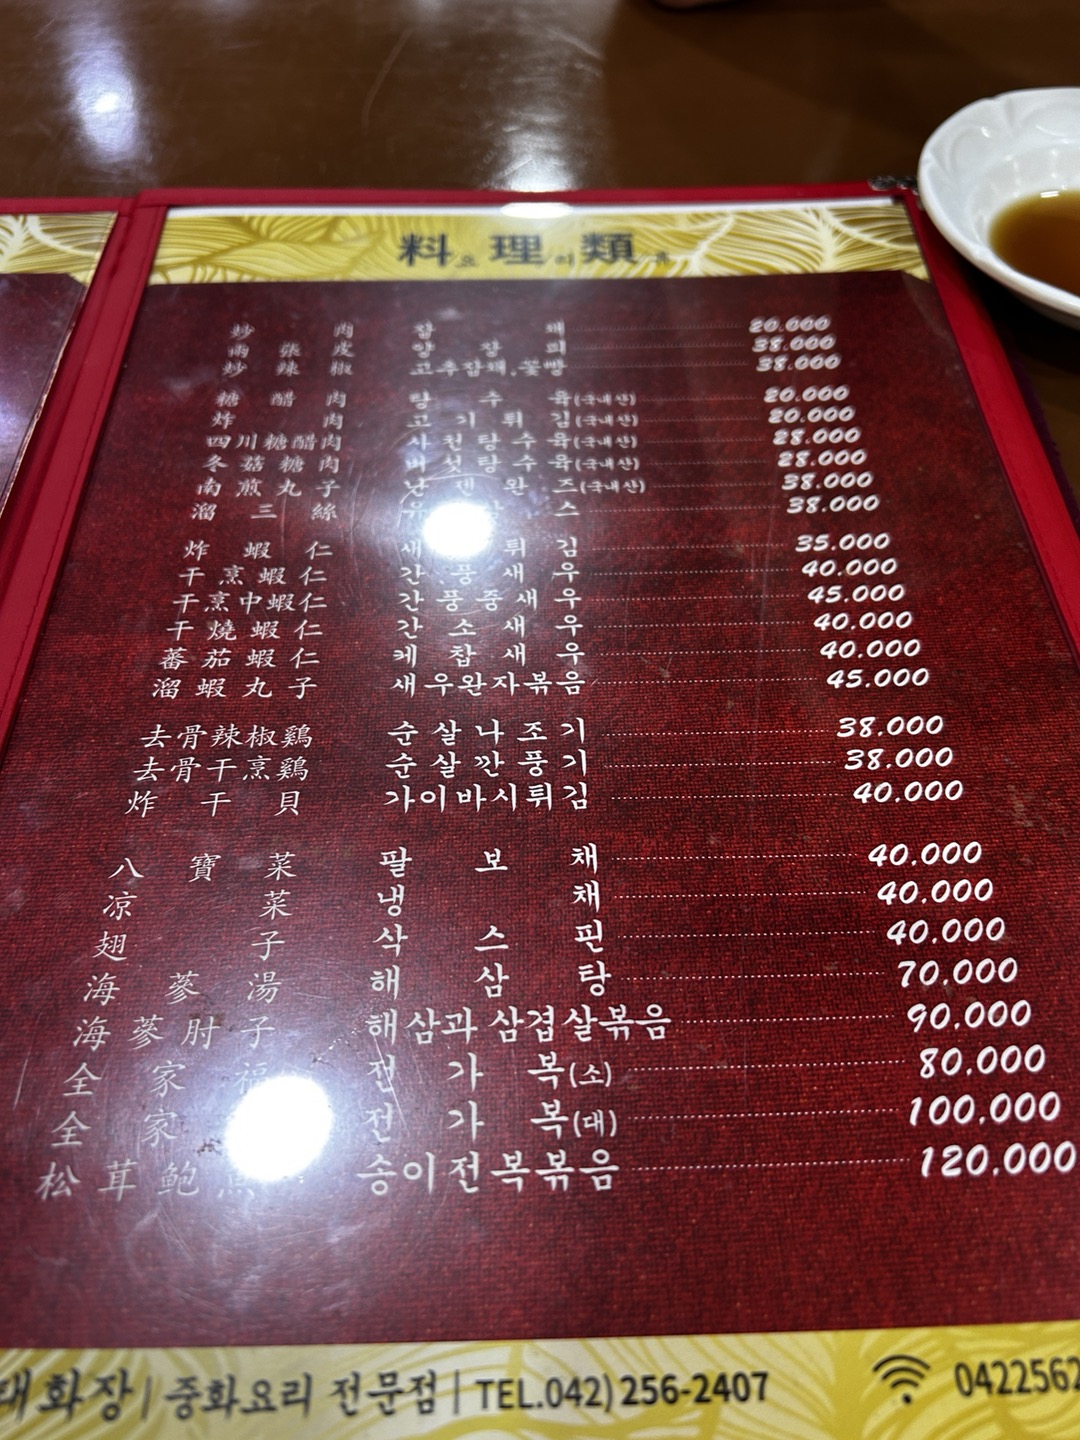 料 요 理 리 類 류
炒 肉 잡 채 20.000
兩 張 皮 양 장 피 38.000
炒 辣 椒 고추잡채,꽃빵 38.000
糖 醋 肉 탕 수 육(국내산) 20.000
炸 肉 고 기 튀 김(국내산) 20.000
四川糖醋肉 사 천 탕 수 육(국내산) 28.000
冬 菇 糖 肉 버 섯 탕 수 육(국내산) 28.000
南 煎 丸 子 난 젠 완 즈(국내산) 38.000
溜 三 絲 유 스 38.000
炸 蝦 仁 새 튀 김 35.000
干 烹 蝦 仁 간 풍 새 우 40.000
干烹中蝦仁 간 풍 중 새 우 45.000
干 燒 蝦 仁 간 소 새 우 40.000
蕃 茄 蝦 仁 케 찹 새 우 40.000
溜 蝦 丸 子 새우완자볶음 45.000
去骨辣椒鷄 순 살 나 조 기 38.000
去骨干烹鷄 순 살 깐 풍 기 38.000
炸 干 貝 가이바시튀김 40.000
八 寶 菜 팔 보 채 40.000
凉 菜 냉 채 40.000
翅 子 삭 스 핀 40.000
海 蔘 湯 해 삼 탕 70.000
海 蔘 肘 子 해삼과삼겹살볶음 90.000
全 家 福 전 가 복(소) 80.000
全 家 전 가 복(대) 100.000
松 茸 鮑 魚 송이전복볶음 120.000
태화장 | 중화요리 전문점 | TEL.042) 256-2407 0422562